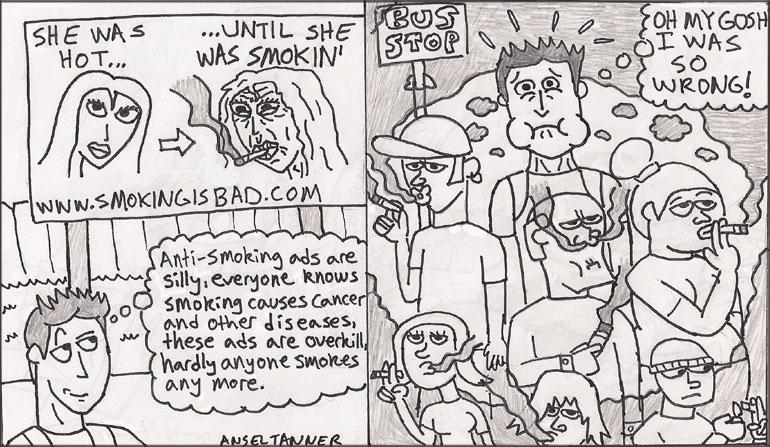 SHE WAS
HOT...
...UNTIL SHE
WAS SMOKIN'
WWW.SMOKINGISBAD.COM
Anti-smoking ads are
silly, everyone knows
smoking causes cancer
and other diseases,
these ads are overkill,
hardly anyone smokes
any more.
ANSELTANNER
BUS
STOP
OH MY GOSH
I WAS
SO
WRONG!